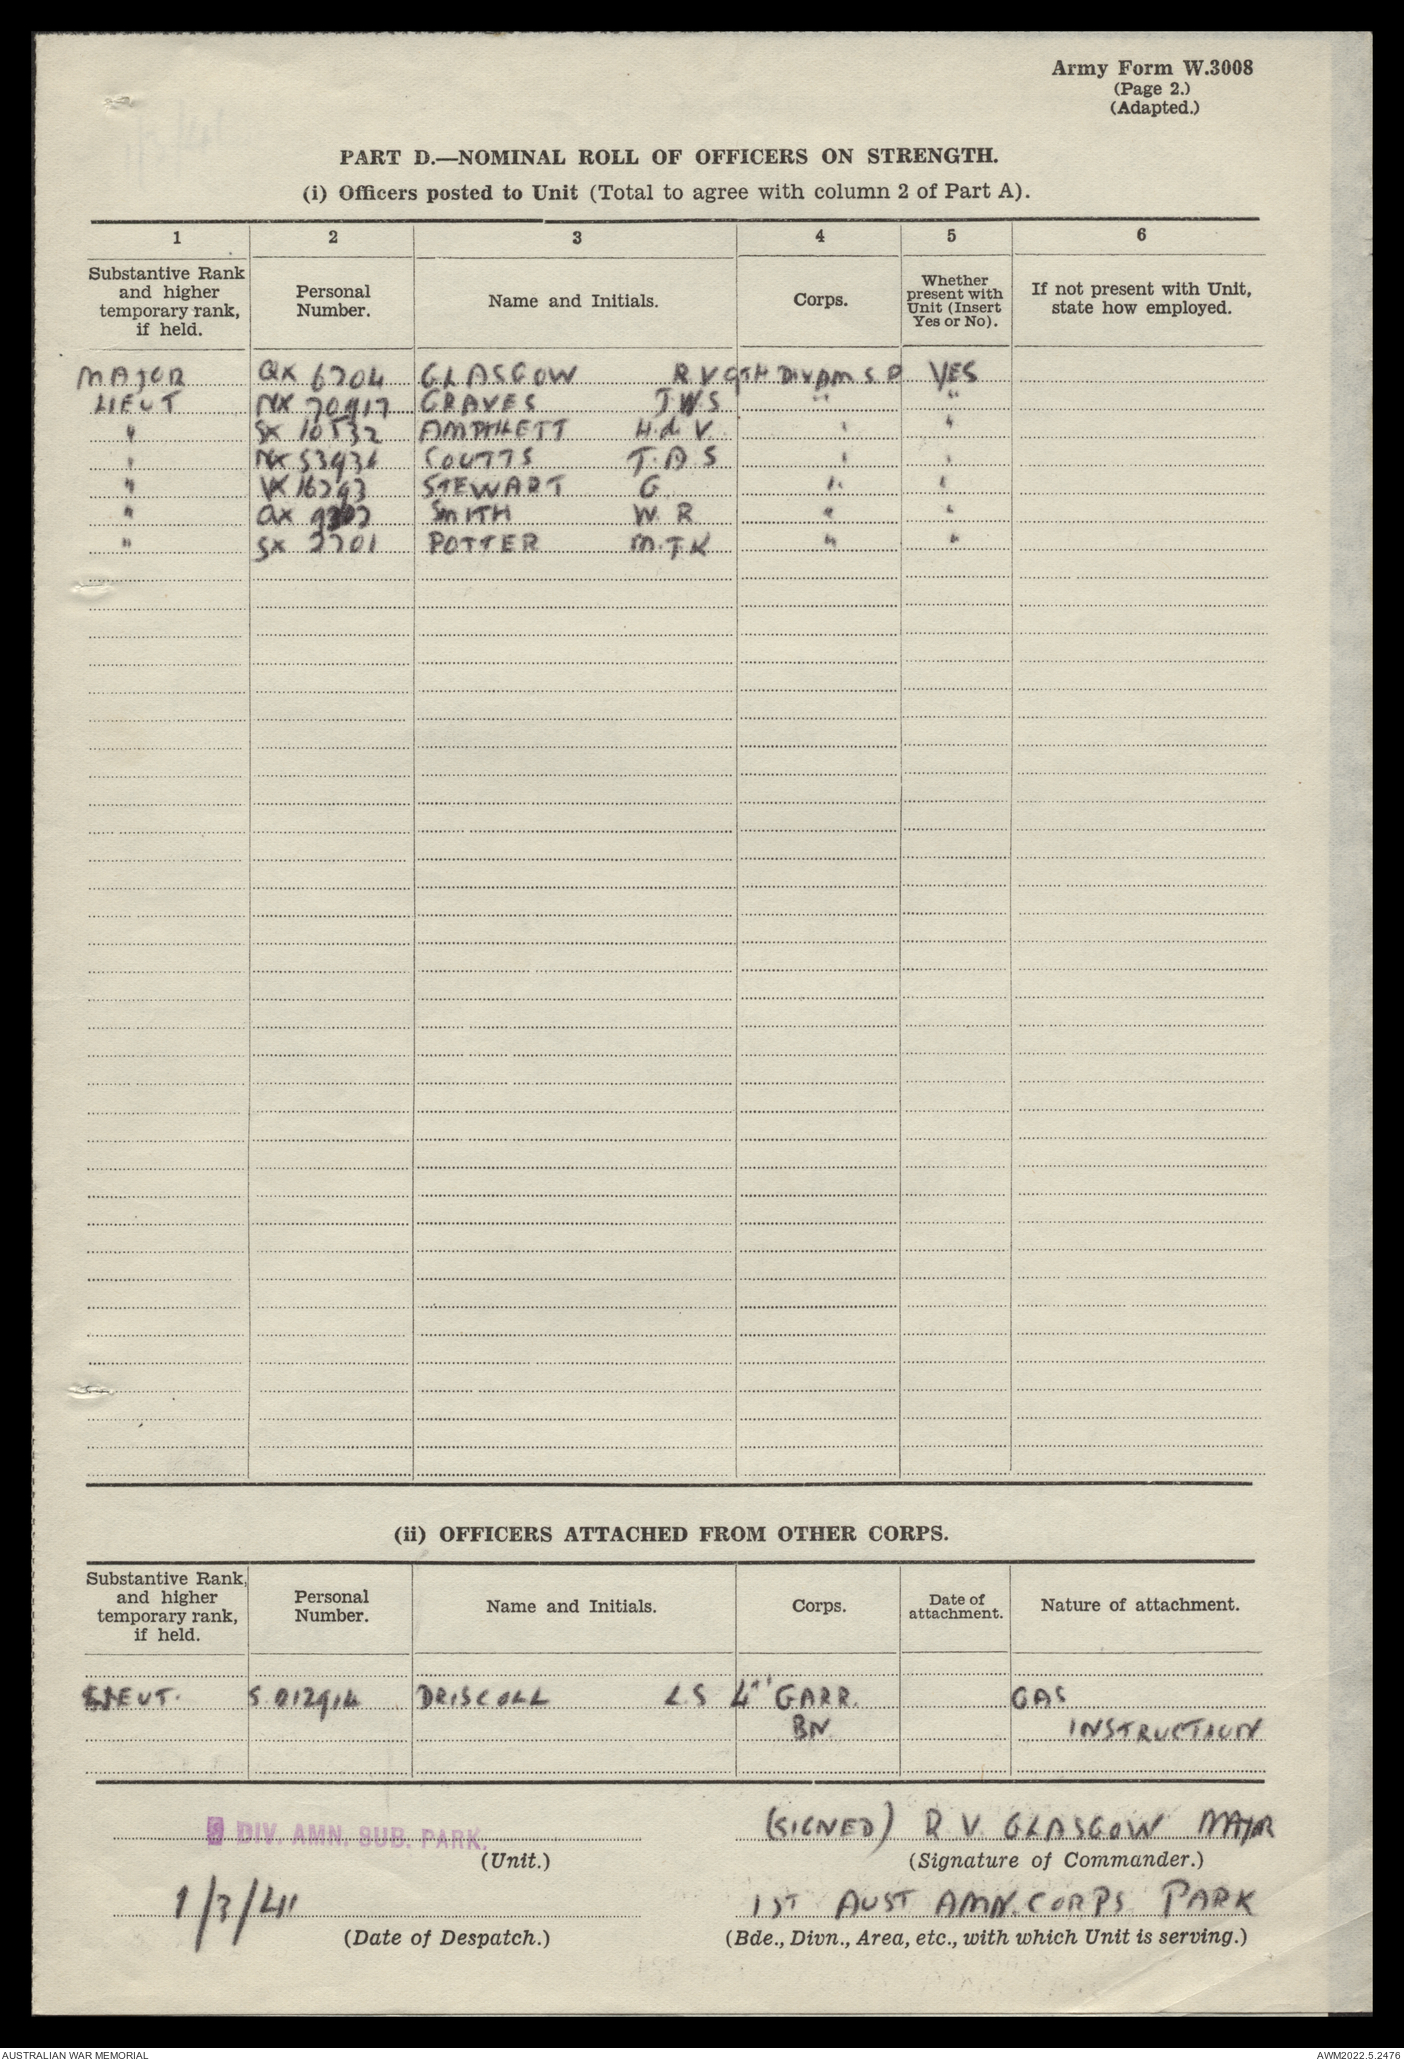 Army Form W.3008
(Page 2.)
(Adapted.)
PART D.—NOMINAL ROLL OF OFFICERS ON STRENGTH.
(i) Officers posted to Unit (Total to agree with column 2 of Part A).
1 2 3 4 5 6
Substantive Rank and higher temporary rank, if held. Personal Number. Name and Initials. Corps. Whether present with Unit (Insert Yes or No). If not present with Unit, state how employed.
MAJOR QX 6204 GLASGOW R V 9TH DIV AM S P YES
LIEUT NX 70917 GRAVES J.W.S " "
" SX 10532 AMPHLETT H.d V. " "
" NX 53934 COUTTS T.A.S " "
" VX 16293 STEWART G " "
" QX SMITH W. R " "
" SX 2701 POTTER M.T.K " "
(ii) OFFICERS ATTACHED FROM OTHER CORPS.
Substantive Rank, and higher temporary rank, if held. Personal Number. Name and Initials. Corps. Date of attachment. Nature of attachment.
LIEUT. S 012914 DRISCOLL L.S 4TH GARR. GAS
BN. INSTRUCTION
9 DIV. AMN. SUB. PARK. (SIGNED) R V. GLASGOW MAJOR
(Unit.) (Signature of Commander.)
1/3/41 1ST AUST AMN. CORPS PARK
(Date of Despatch.) (Bde., Divn., Area, etc., with which Unit is serving.)
AUSTRALIAN WAR MEMORIAL AWM2022.5.2476